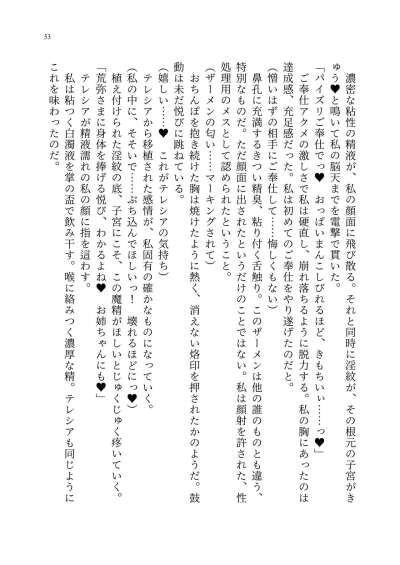 53
　濃密な粘性の精液が、私の顔面に飛び散る。それと同時に淫紋が、その根元の子宮がき
ゅう♥と鳴いて私の脳天までを電撃で貫いた。
「パイズリご奉仕でっ♥　おっぱいまんこしびれるほど、きもちいぃ……っ♥」
　ご奉仕アクメの激しさで私は硬直し、崩れ落ちるように脱力する。私の胸にあったのは
達成感、充足感だった。私は初めてのご奉仕をやり遂げたのだと。
（憎いはず相手にご奉仕して……悔しくもない）
　鼻孔に充満するきつい精臭、粘り付く舌触り。このザーメンは他の誰のものとも違う、
特別なものだ。ただ顔面に出されたというだけのことではない。私は顔射を許された、性
処理用のメスとして認められたということ。
（ザーメンの匂い……マーキングされて）
　おちんぽを抱き続けた胸は焼けたように熱く、消えない烙印を押されたかのようだ。鼓
動は未だ悦びに跳ねている。
（嬉しい……♥　これがテレシアの気持ち）
　テレシアから移植された感情が、私固有の確かなものになっていく。
（私の中に、そそいで……ぶち込んでほしいっ！　壊れるほどにっ♥）
　植え付けられた淫紋の底、子宮にこそ、この魔精がほしいとじゅくじゅく疼いていく。
「荒弥さまに身体を捧げる悦び、わかるよね♥　お姉ちゃんにも♥」
　テレシアが精液濡れの私の顔に指を這わす。
　私は粘つく白濁液を掌の盃で飲み干す。喉に絡みつく濃厚な精。テレシアも同じように
これを味わったのだ。